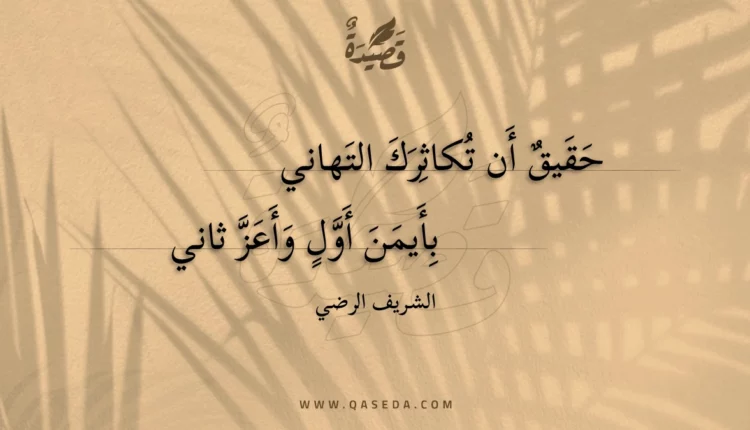 قَصِيدَةٌ
حَقَيقٌ أَن تُكاثِرَكَ التَهاني
بِأَيمَنَ أَوَّلٍ وَأَعَزَّ ثاني
الشريف الرضي
WWW.QASEDA.COM